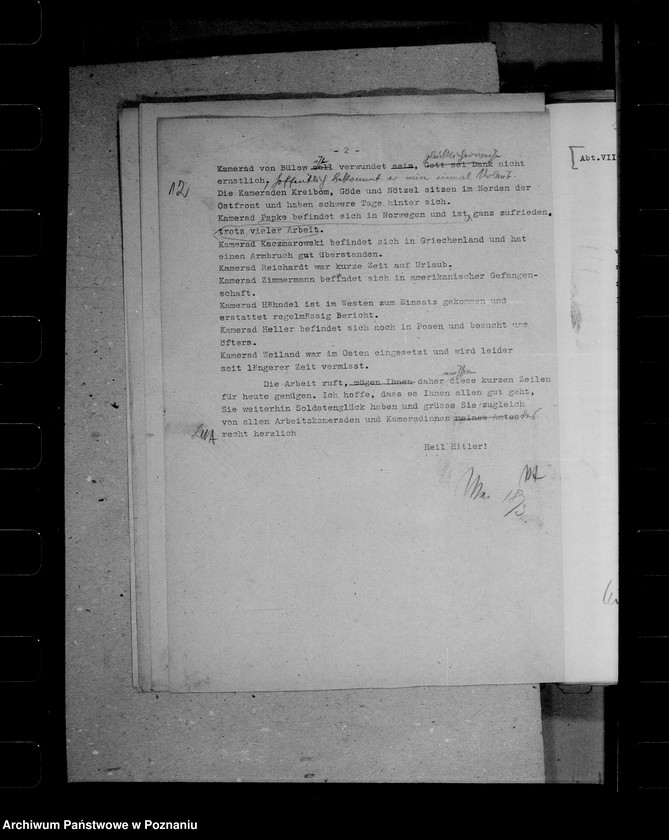 - 2 -
Kamerad von Bülow soll ist verwundet sein, Gott sei Dank nicht
ernstlich, hoffentlich bekommt er nun einmal Urlaub.
12)
Die Kameraden Kreibom, Göde und Nötzel sitzen im Norden der
Ostfront und haben schwere Tage hinter sich.
Kamerad Papke befindet sich in Norwegen und ist, ganz zufrieden,
trotz vieler Arbeit.
Kamerad Kaczmarowski befindet sich in Griechenland und hat
einen Armbruch gut überstanden.
Kamerad Reichardt war kurze Zeit auf Urlaub.
Kamerad Zimmermann befindet sich in amerikanischer Gefangen-
schaft.
Kamerad Hähndel ist im Westen zum Einsatz gekommen und
erstattet regelmässig Bericht.
Kamerad Heller befindet sich noch in Posen und besucht uns
öfters.
Kamerad Weiland war im Osten eingesetzt und wird leider
seit längerer Zeit vermisst.
Die Arbeit ruft, mögen Ihnen daher müssen diese kurzen Zeilen
für heute genügen. Ich hoffe, dass es Ihnen allen gut geht,
Sie weiterhin Soldatenglück haben und grüsse Sie zugleich
von allen Arbeitskameraden und Kameradinnen meines Amtes des
LWA recht herzlich
Heil Hitler!
Abt.VII
Archiwum Państwowe w Poznaniu